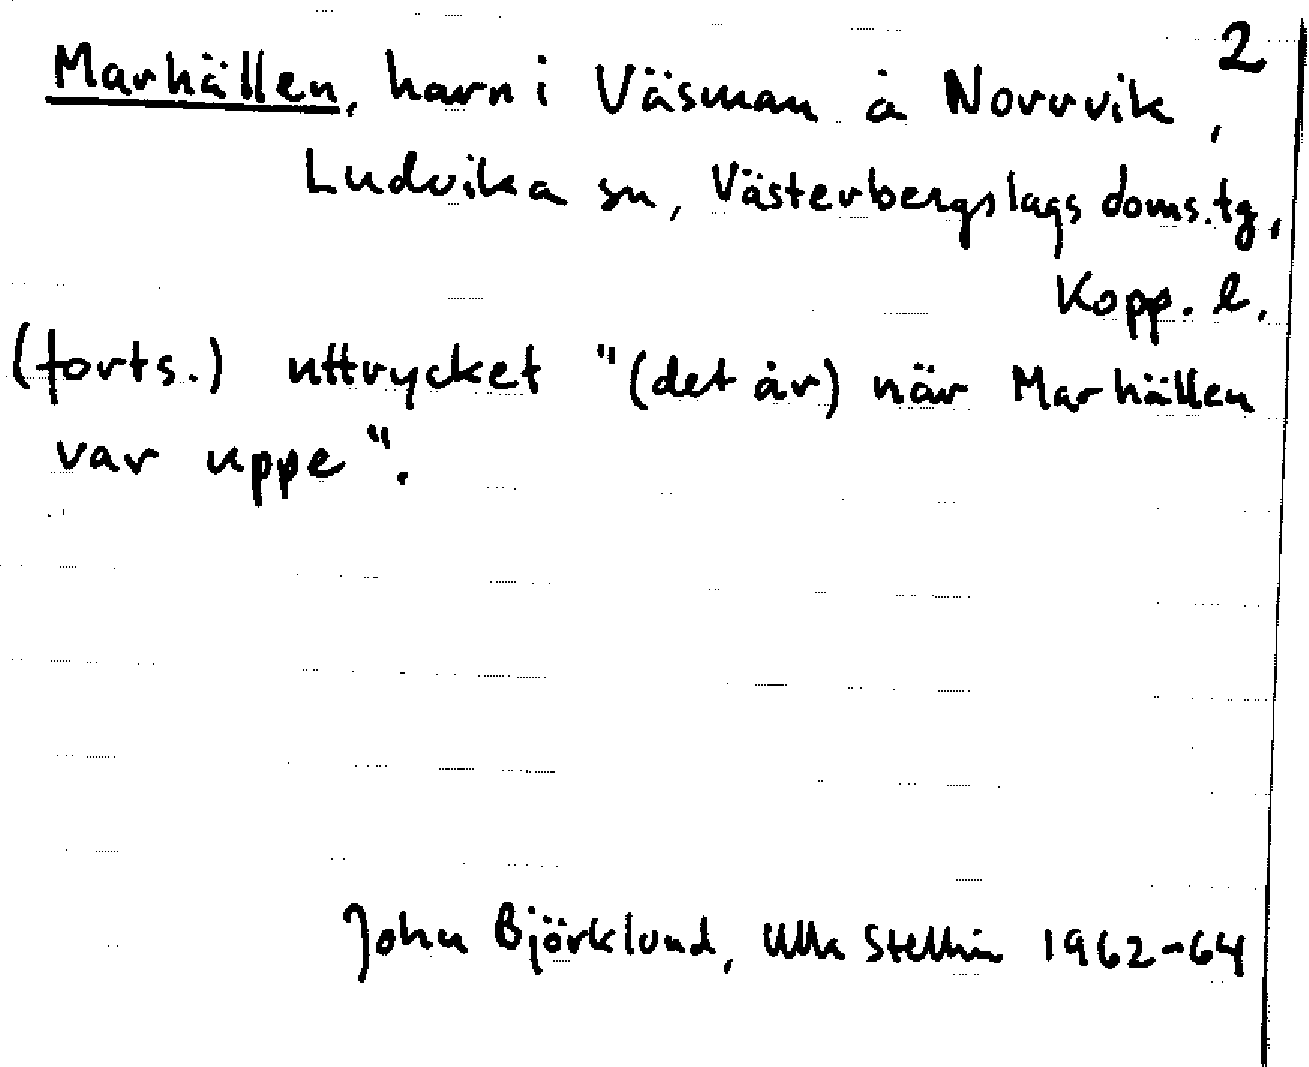 2
Marhällen, harn i Väsman å Norrvik,
Ludvika sn, Västerbergslags doms.tg,
Kopp. l.
(forts.) uttrycket "(det år) när Marhällen
var uppe".
John Björklund, Ulla Stellin 1962-64